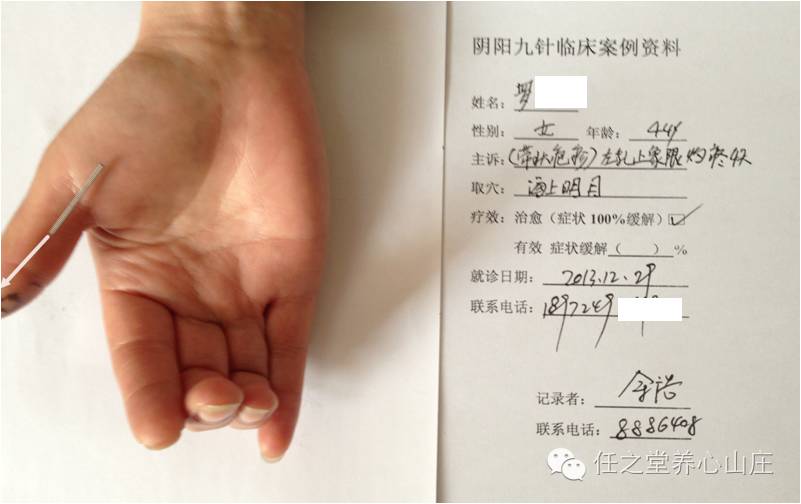 阴阳九针临床案例资料
姓名：罗
性别：女 年龄：44岁
主诉：(带状疱疹)左乳上象限灼疼
取穴：海上明月
疗效：治愈（症状100%缓解）☑
有效 症状缓解（ ）%
就诊日期：2013.12.29
联系电话：1897249
记录者：余浩
联系电话：8886408
任之堂养心山庄